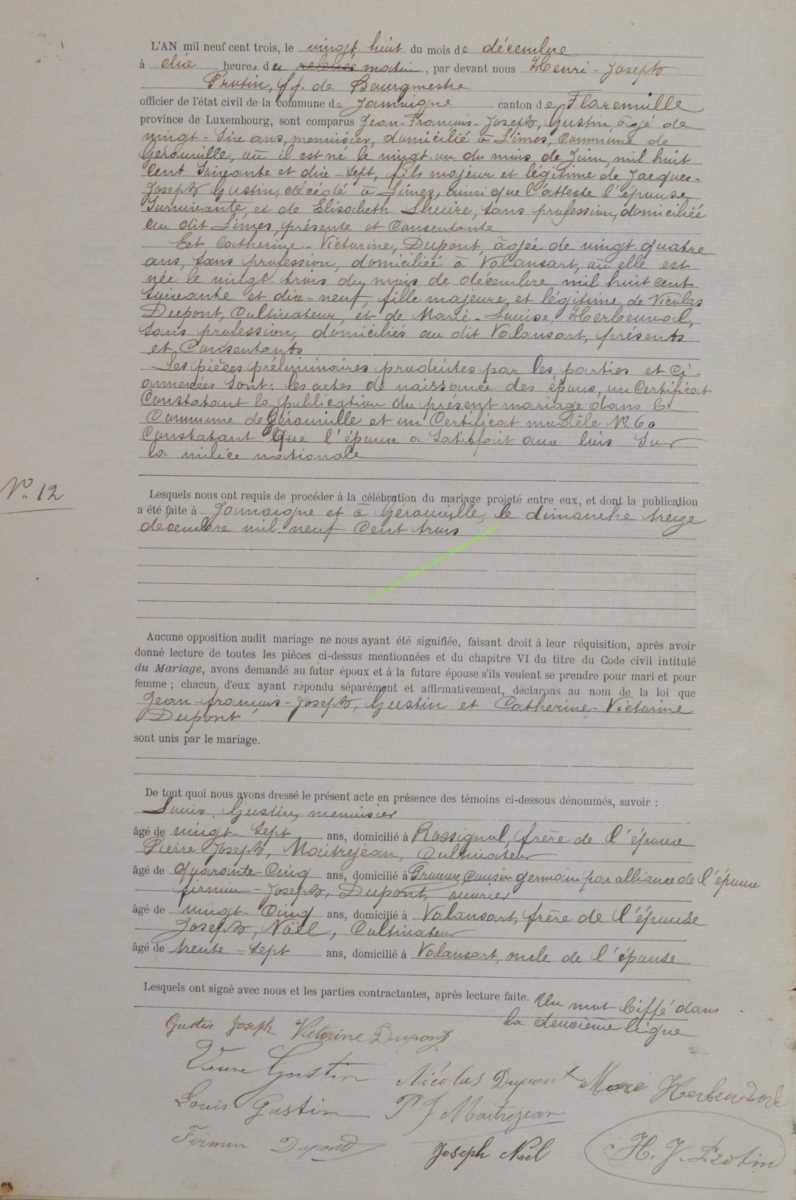 L'AN mil neuf cent trois, le vingt huit du mois de décembre
à dix heures du matin, par devant nous Henri-Joseph
Protin, ff. de Bourgmestre
officier de l'état civil de la commune de Jamoigne canton de Florenville
province de Luxembourg, sont comparus Jean-François-Joseph, Gustin, âgé de
vingt-six ans, menuisier, domicilié à Limes, Commune de
Gérouville, où il est né le vingt un du mois de Juin, mil huit
Cent Soixante et dix-Sept, fils majeur et légitime de Jacques-
Joseph Gustin, décédé à Limes, ainsi que l'atteste l'épouse
Survivante, et de Elisabeth, sans profession, domiciliée
au dit Limes, présente et Consentante
Et Catherine-Victorine, Dupont, âgée de vingt quatre
ans, sans profession, domiciliée à Valansart, où elle est
née le vingt trois du mois de décembre mil huit cent
Soixante et dix-neuf, fille majeure, et légitime de Nicolas
Dupont, Cultivateur, et de Marie-Louise, Herbeuval,
sans profession, domiciliés au dit Valansart, présents
et Consentants
Les pièces préliminaires produites par les parties et Ci-
annexées sont: les actes de naissance des époux, un Certificat
Constatant la publication du présent mariage dans la
Commune de Gérouville et un Certificat modèle No 60
Constatant que l'époux a Satisfait aux lois Sur
la milice nationale
No 12
Lesquels nous ont requis de procéder à la célébration du mariage projeté entre eux, et dont la publication
a été faite à Jamoigne et à Gérouville, le dimanche treize
décembre mil neuf Cent trois
Aucune opposition audit mariage ne nous ayant été signifiée, faisant droit à leur réquisition, après avoir
donné lecture de toutes les pièces ci-dessus mentionnées et du chapitre VI du titre du Code civil intitulé
du Mariage, avons demandé au futur époux et à la future épouse s'ils veulent se prendre pour mari et pour
femme ; chacun d'eux ayant répondu séparément et affirmativement, déclarons au nom de la loi que
Jean-François-Joseph, Gustin et Catherine-Victorine
Dupont
sont unis par le mariage.
De tout quoi nous avons dressé le présent acte en présence des témoins ci-dessous dénommés, savoir :
Louis, Gustin, menuisier
âgé de vingt-Sept ans, domicilié à Rossignol, frère de l'époux
Pierre-Joseph, Maitrejean, Cultivateur
âgé de quarante-Cinq ans, domicilié à Prouvy, Cousin germain par alliance de l'époux
Firmin-Joseph, Dupont, ouvrier
âgé de vingt-Cinq ans, domicilié à Valansart, frère de l'épouse
Joseph, Noël, Cultivateur
âgé de trente-Sept ans, domicilié à Valansart, oncle de l'épouse
Lesquels ont signé avec nous et les parties contractantes, après lecture faite. Un mot biffé dans
la deuxième ligne
Gustin Joseph Victorine Dupont
Veuve Gustin Nicolas Dupont Marie Herbeuval
Louis Gustin P J Maitrejean
Firmin Dupond Joseph Noël H. J. Protin